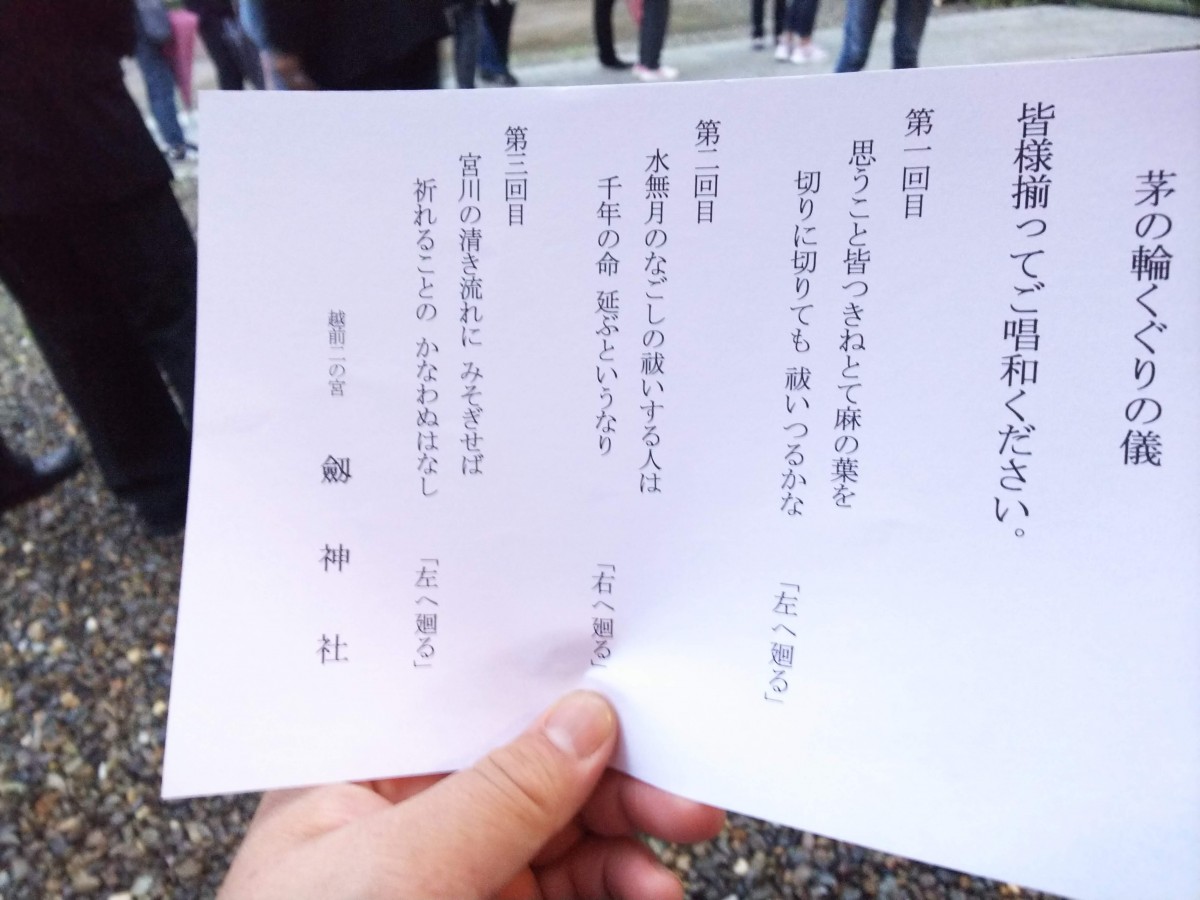 茅の輪くぐりの儀
皆様揃ってご唱和ください。
第一回目
思うこと皆つきねとて麻の葉を
切りに切りても 祓いつるかな 「左へ廻る」
第二回目
水無月のなごしの祓いする人は
千年の命 延ぶというなり 「右へ廻る」
第三回目
宮川の清き流れに みそぎせば
祈れることの かなわぬはなし 「左へ廻る」
越前二の宮 劔神社